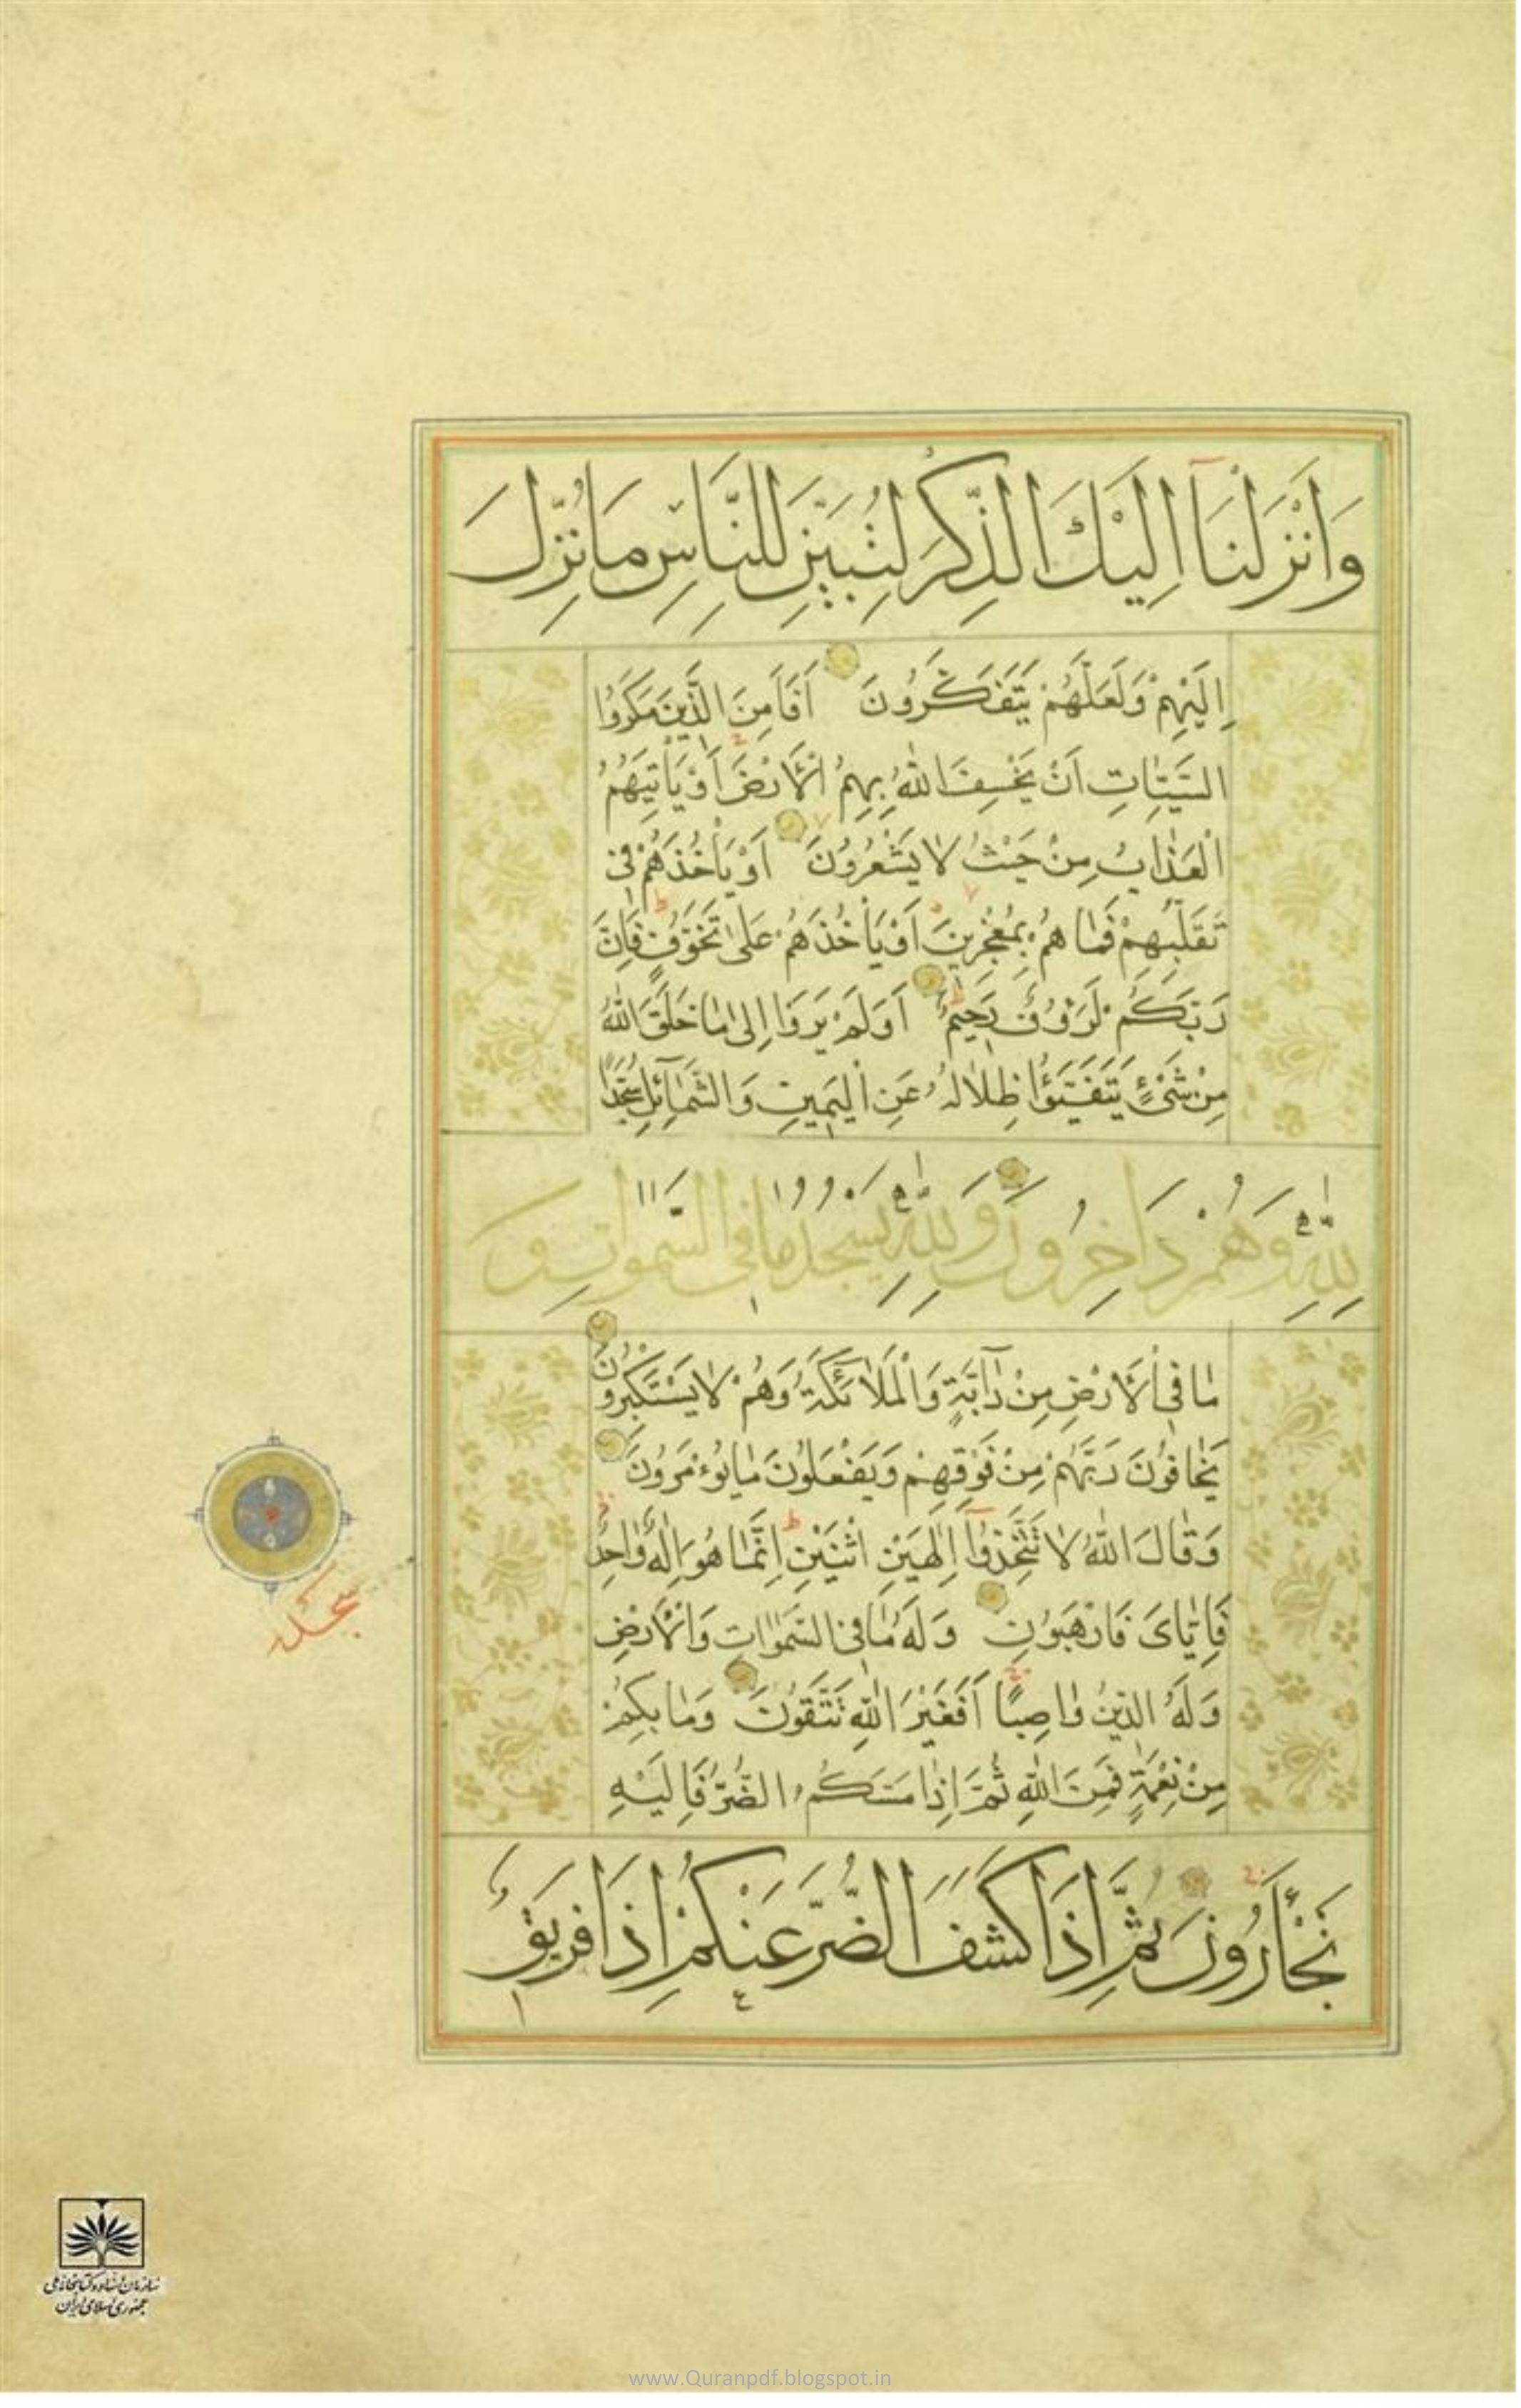 وَاَنْزَلْنَآ اِلَيْكَ الذِّكْرَ لِتُبَيِّنَ لِلنَّاسِ مَا نُزِّلَ
اِلَيْهِمْ وَلَعَلَّهُمْ يَتَفَكَّرُونَ اَفَاَمِنَ الَّذِينَ مَكَرُوا
السَّيِّئَاتِ اَنْ يَخْسِفَ اللّٰهُ بِهِمُ الْاَرْضَ اَوْ يَاْتِيَهُمُ
الْعَذَابُ مِنْ حَيْثُ لَا يَشْعُرُونَ اَوْ يَاْخُذَهُمْ فِي
تَقَلُّبِهِمْ فَمَا هُمْ بِمُعْجِزِينَ اَوْ يَاْخُذَهُمْ عَلٰى تَخَوُّفٍ فَاِنَّ
رَبَّكُمْ لَرَؤُفٌ رَحِيمٌ اَوَلَمْ يَرَوْا اِلٰى مَا خَلَقَ اللّٰهُ
مِنْ شَيْءٍ يَتَفَيَّؤُا ظِلَالُهُ عَنِ الْيَمِينِ وَالشَّمَآئِلِ سُجَّدًا
لِلّٰهِ وَهُمْ دَاخِرُونَ وَلِلّٰهِ يَسْجُدُ مَا فِي السَّمٰوَاتِ وَ
مَا فِي الْاَرْضِ مِنْ دَآبَّةٍ وَالْمَلَائِكَةُ وَهُمْ لَا يَسْتَكْبِرُونَ
يَخَافُونَ رَبَّهُمْ مِنْ فَوْقِهِمْ وَيَفْعَلُونَ مَا يُؤْمَرُونَ
وَقَالَ اللّٰهُ لَا تَتَّخِذُوآ اِلٰهَيْنِ اثْنَيْنِ اِنَّمَا هُوَ اِلٰهٌ وَاحِدٌ
فَاِيَّايَ فَارْهَبُونِ وَلَهُ مَا فِي السَّمٰوَاتِ وَالْاَرْضِ
وَلَهُ الدِّينُ وَاصِبًا اَفَغَيْرَ اللّٰهِ تَتَّقُونَ وَمَا بِكُمْ
مِنْ نِعْمَةٍ فَمِنَ اللّٰهِ ثُمَّ اِذَا مَسَّكُمُ الضُّرُّ فَاِلَيْهِ
تَجْأَرُونَ ثُمَّ اِذَا كَشَفَ الضُّرَّ عَنْكُمْ اِذَا فَرِيقٌ
سجده
سازمان اسناد و کتابخانه ملی
جمهوری اسلامی ایران
www.Quranpdf.blogspot.in